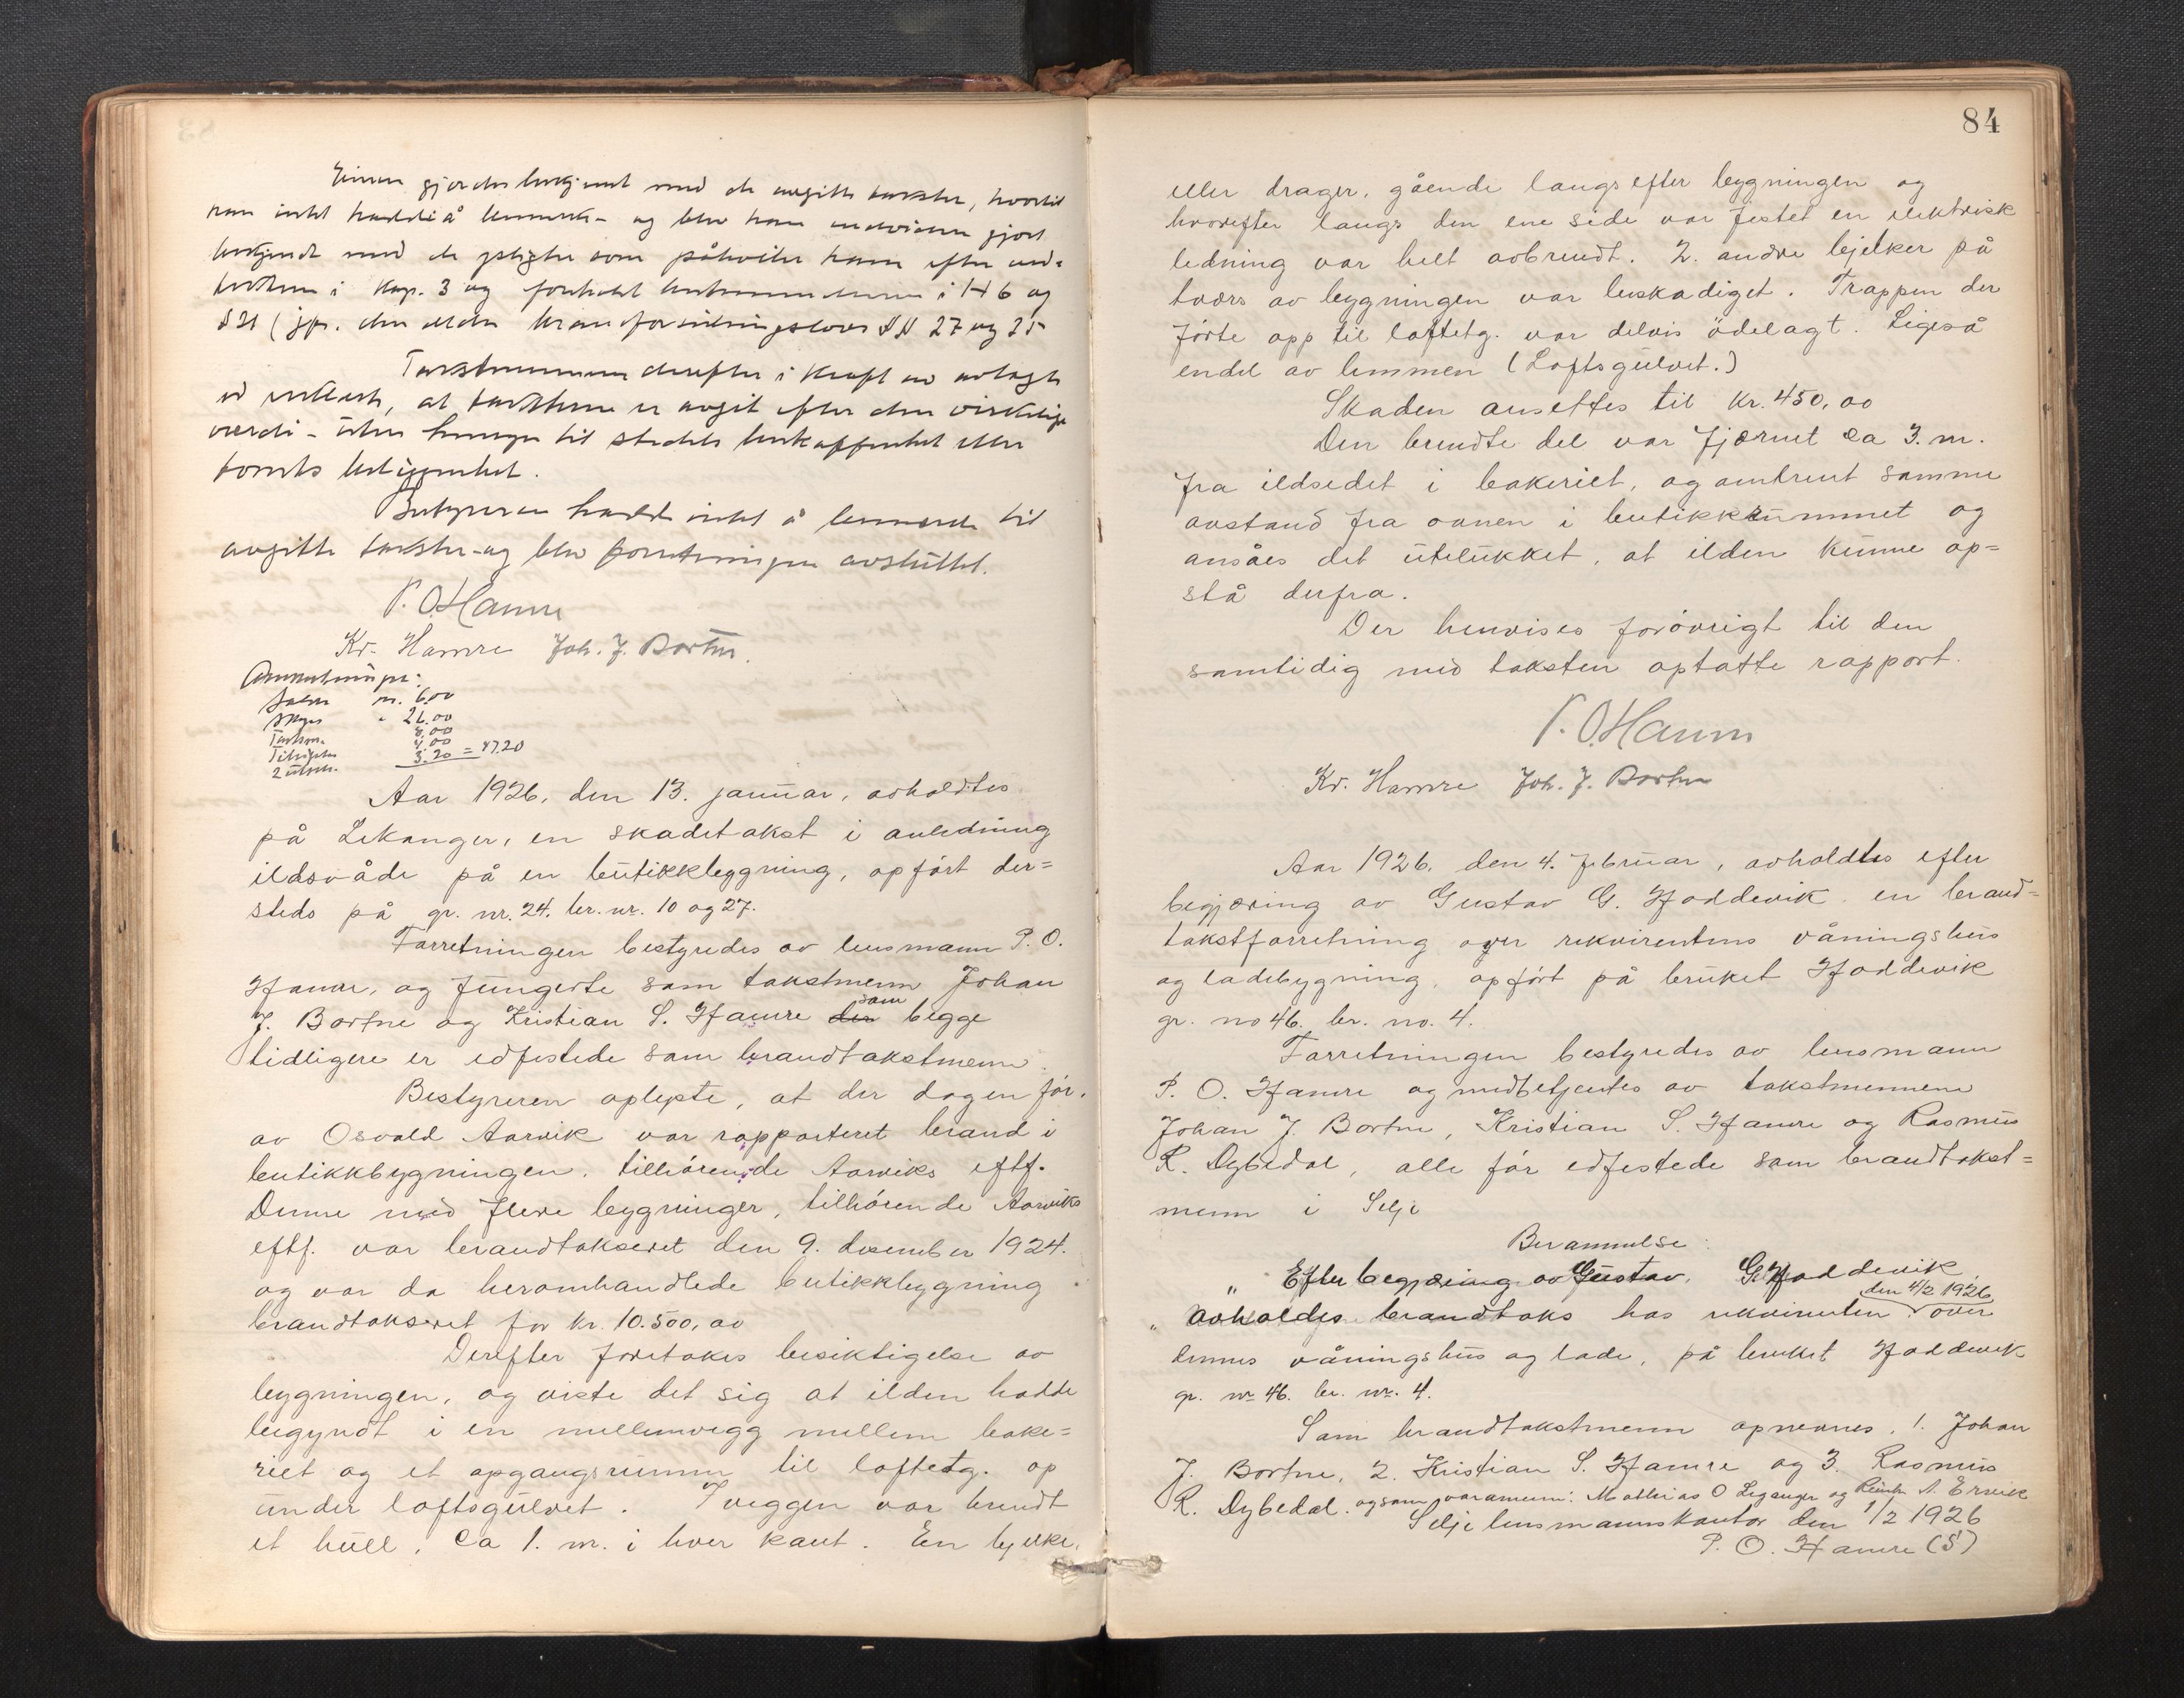 Eieren gjordes bekjent med de avgitte takster, hvortil
han intet hadde å bemerke - og blev han endvidere gjort
bekjendt med de pligter som påhviler ham efter ved-
tektene i Kap. 3 og forøvrig bestemmelserne i §§ 6 og
§ 21 (jfr. den eldre brandforsikringslovs §§ 27 og 25
Takstmennene derefter i kraft av avlagte
ed erklærte, at takstene er avgit efter den virkelige
værdi - uten hensyn til stedets beskaffenhet eller
tomts beliggenhet.
Bestyreren hadde intet å bemerke til
avgitte takster - og blev forretningen avsluttet.
P. O. Hamre
Kr. Hamre Joh. J. Bortne.
Omkostninger:
Salær kr. 6.00
Skyss " 26.00
Takstm. 8.00
4.00
2 utskr. 3.20 = 47.20
Aar 1926, den 13. januar, avholdtes
på Leikanger, en skadetakst i anledning
ildsvåde på en butikkbygning, opført der=
steds på gr. nr. 24. br. nr. 10 og 27.
Forretningen bestyredes av lensmann P. O.
Hamre, og fungerte som takstmenn Johan
J. Bortne og Kristian S. Hamre der som begge
tidligere er edfestede som brandtakstmenn.
Bestyreren oplyste, at der dagen før,
av Osvald Aarvik var rapporteret brand i
butikkbygningen, tilhørende Aarviks eftf.
Denne med flere bygninger, tilhørende Aarviks
eftf. var brandtakseret den 9. desember 1924.
og var da heromhandlede butikkbygning
brandtakseret for kr. 10.500,00
Derefter foretokes besiktigelse av
bygningen, og viste det sig at ilden hadde
begyndt i en mellemvegg mellem bake=
riet og et opgangsrumm til loftetg. op
under loftsgulvet. I veggen var brendt
et hull, ca 1. m. i hver kant. En bjelke,
84
eller drager, gående langs efter bygningen og
hvorefter langs den ene side var festet en elektrisk
ledning var helt avbrendt. 2. andre bjelker på
tvers av bygningen var beskadiget. Trappen der
førte opp til loftetg. var delvis ødelagt. Ligeså
endel av lemmen (Loftsgulvet.)
Skaden ansettes til kr. 450,00
Den brendte del var fjernet ca 3. m.
fra ildsedet i bakeriet, og omtrent samme
avstand fra ovnen i butikkrummet og
ansåes det utelukket, at ilden kunne op=
stå derfra.
Der henvises forøvrigt til den
samtidig med taksten optatte rapport.
P. O. Hamre
Kr. Hamre Joh. J. Bortne
Aar 1926. den 4. februar, avholdtes efter
begjæring av Gustav G. Hoddevik en brand=
takstforretning over rekvirentens våningshus
og ladebygning, opført på bruket Hoddevik
gr. no 46. br. no. 4.
Forretningen bestyredes av lensmann
P. O. Hamre og medbetjentes av takstmennene
Johan J. Bortne, Kristian S. Hamre og Rasmus
R. Dybedal, alle før edfestede som brandtakst=
menn i Selje
Berammelse:
" Efter begjæring av Gustav. G. Hoddevik
" avholdes brandtaks hos rekvirenten den 4/2 1926 over
dennes våningshus og lade, på bruket Hoddevik
gr. nr 46. br. nr. 4.
Som brandtakstmenn opnevnes, 1. Johan
J. Bortne, 2. Kristian S. Hamre og 3. Rasmus
R. Dybedal. og som varamenn: Mathias O Leganger og A. Ervik
Selje lensmannskontor den 1/2 1926
P. O. Hamre (S)